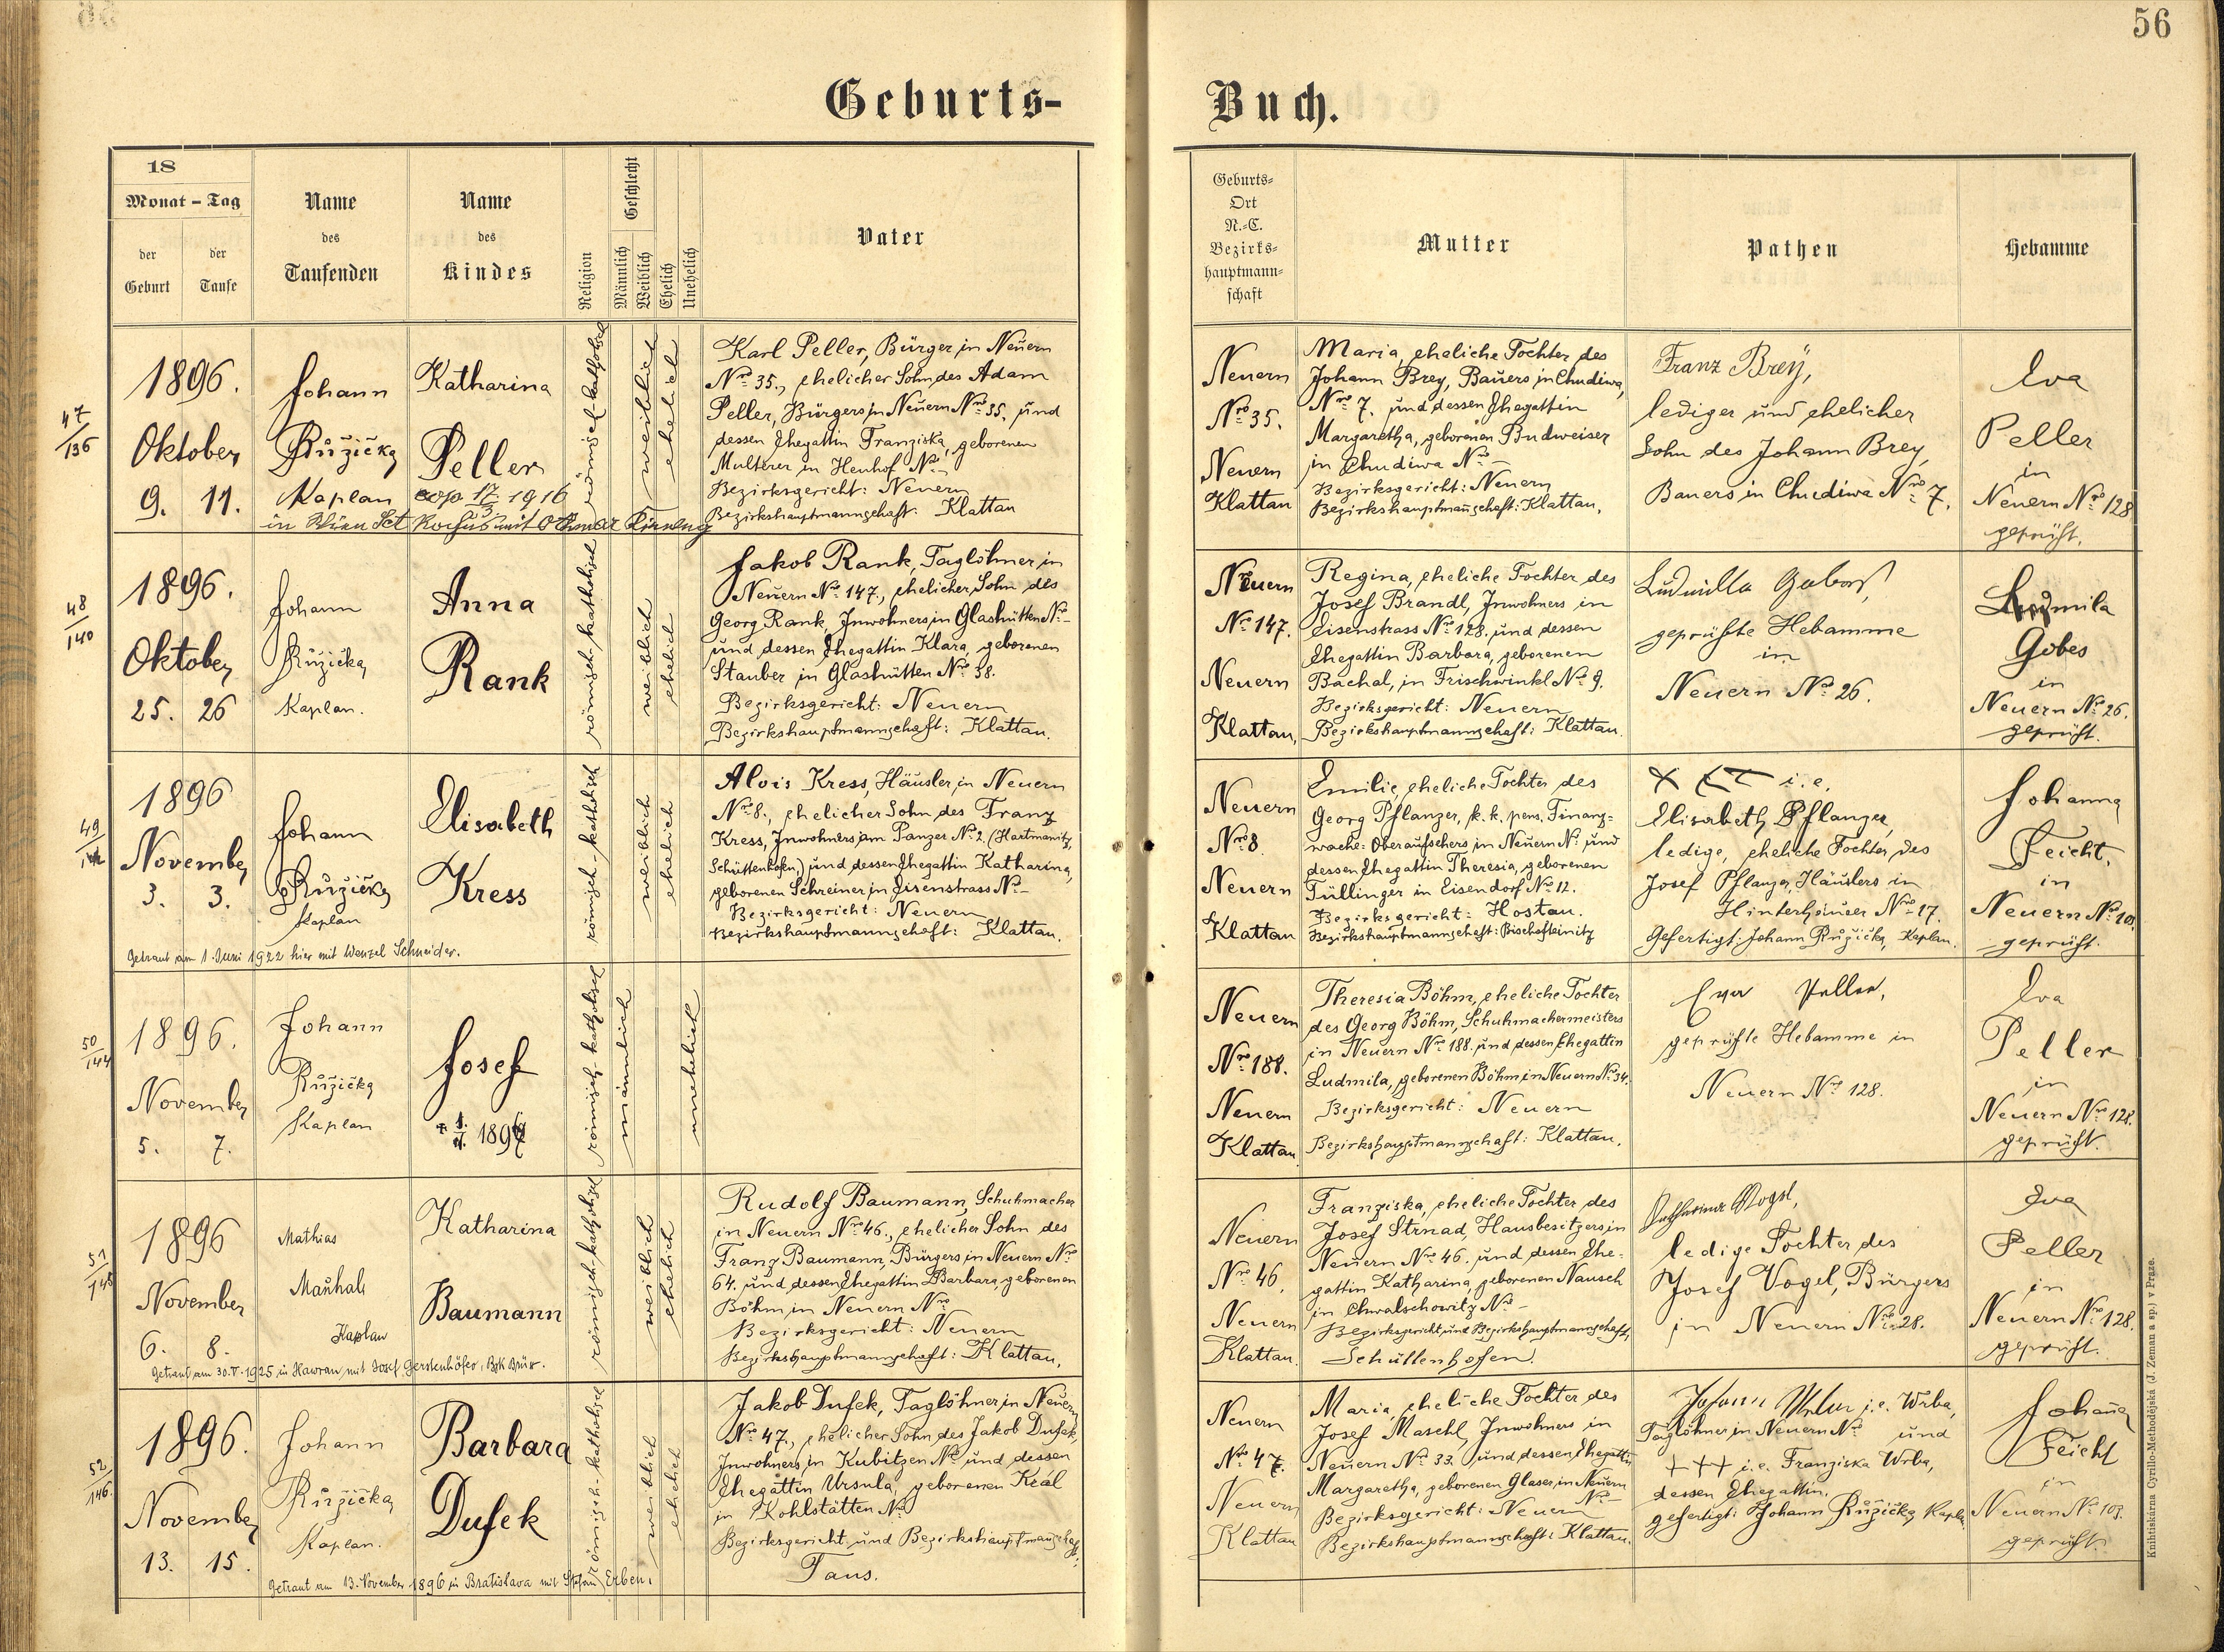 56
Geburts-
Buch.
18
Monat - Tag
der Geburt
der Taufe
Name
des
Taufenden
Name
des
Kindes
Religion
Geschlecht
Männlich
Weiblich
Ehelich
Unehelich
Vater
Geburts-
Ort
N.-C.
Bezirks-
hauptmann-
schaft
Mutter
Pathen
Hebamme
47/136
1896.
Oktober
9. 11.
Johann
Růžička
Kaplan
Katharina
Peller
cop 17/3 1916
in Wien Set Rochus mit Othmar
römisch-katholisch
weiblich
ehelich
Karl Peller, Bürger in Neuern
Nro 35., ehelicher Sohn des Adam
Peller, Bürgers in Neuern Nro 35. und
dessen Ehegattin Franziska, geborenen
Multerer in Heuhof No -
Bezirksgericht: Neuern
Bezirkshauptmannschaft: Klattau
Neuern
Nro 35.
Neuern
Klattau
Maria, eheliche Tochter des
Johann Brey, Bauers in Chudiwa,
Nro 7. und dessen Ehegattin
Margaretha, geborenen Budweiser
in Chudiwa No -
Bezirksgericht: Neuern
Bezirkshauptmanschaft: Klattau.
Franz Breÿ,
lediger und ehelicher
Sohn des Johann Brey,
Bauers in Chudiwa Nro 7.
Eva
Peller
in
Neuern Nro 128
geprüft.
48/140
1896.
Oktober
25. 26
Johann
Růžička,
Kaplan.
Anna
Rank
römisch-katholisch
weiblich
ehelich
Jakob Rank, Taglöhner in
Neuern No 147., ehelicher Sohn des
Georg Rank, Inwohners in Glashütten No -
und dessen Ehegattin Klara, geborenen
Stauber in Glashütten Nro 38.
Bezirksgericht: Neuern
Bezirkshauptmannschaft: Klattau.
Neuern
No 147.
Neuern
Klattau,
Regina, eheliche Tochter des
Josef Brandl, Inwohners in
Eisenstrass No 128. und dessen
Ehegattin Barbara, geborenen
Bachal, in Frischwinkl No 9.
Bezirksgericht: Neuern
Bezirkshauptmannschaft: Klattau.
Ludmilla
geprüfte Hebamme
in
Neuern No 26.
Ludmila
Gobes
in
Neuern No 26.
geprüft.
49
1896
November
3. 3.
Johann
Růžička
Kaplan
Elisabeth
Kress
römisch-katholisch
weiblich
ehelich
Getraut am 1. Juni 1922 hier mit Wenzel Schneider.
Alois Kress, Häusler in Neuern
Nro 8., ehelicher Sohn des Franz
Kress, Inwohners am Panzer No 2. (Hartmanitz,
Schüttenhofen,) und dessen Ehegattin Katharina,
geborenen Schreiner in Eisenstrass No -
Bezirksgericht: Neuern
Bezirkshauptmannschaft: Klattau.
Neuern
Nro 8
Neuern
Klattau
Emilie, eheliche Tochter des
Georg Pflanzer, k. k. pens. Finanz-
wache-Oberaufsehers in Neuern No und
dessen Ehegattin Theresia, geborenen
Tüllinger in Eisendorf No 12.
Bezirksgericht: Hostau.
Bezirkshauptmannschaft: Bischofteinitz
i. e.
Elisabeth Pflanzer,
ledige, eheliche Tochter des
Josef Pflanzer, Häuslers in
Hinterhäuser Nro 17.
Gefertigt: Johann Růžička, Kaplan.
Johanna
Feicht,
in
Neuern No 10
geprüft.
50/144
1896.
November
5. 7.
Johann
Růžička
Kaplan
Josef
römisch-katholisch
männlich
unehelich
Neuern
Nro 188.
Neuern
Klattau
Theresia Böhm, eheliche Tochter
des Georg Böhm, Schuhmachermeisters
in Neuern Nro 188. und dessen Ehegattin
Ludmila, geborenen Böhm in Neuern No 34.
Bezirksgericht: Neuern
Bezirkshauptmannschaft: Klattau.
Eva Peller,
geprüfte Hebamme in
Neuern Nro 128.
Eva
Peller
in
Neuern Nro 128.
geprüft.
51/145
1896
November
6. 8.
Mathias
Kaplan
Katharina
Baumann
römisch-katholisch
weiblich
ehelich
Getraut am 30. V. 1925 in Hawran mit Josef Gerstenhöfer, Bzk Brüx.
Rudolf Baumann, Schuhmacher
in Neuern Nro 46., ehelicher Sohn des
Franz Baumann, Bürgers in Neuern Nro
64. und dessen Ehegattin Barbara, geborenen
Böhm in Neuern Nro
Bezirksgericht: Neuern
Bezirkshauptmannschaft: Klattau,
Neuern
No 46.
Neuern
Klattau.
Franziska, eheliche Tochter des
Josef Strnad, Hausbesitzers in
Neuern Nro 46. und dessen Ehe-
gattin Katharina, geborenen Nausch
in Chwalschowitz No -
Bezirksgericht und Bezirkshauptmannschaft,
Schüttenhofen.
Katharina Vogel,
ledige Tochter des
Josef Vogel, Bürgers
in Neuern Nro 28.
Eva
Peller
in
Neuern Nro 128.
geprüft.
52/146.
1896.
November
13. 15.
Johann
Růžička
Kaplan.
Barbara
Dufek
römisch-katholisch
weiblich
ehelich
Getraut am 13. November 1896 in Bratislava mit Stefan Erben.
Jakob Dufek, Taglöhner in Neuern
No 47., ehelicher Sohn des Jakob Dufek,
Inwohners in Kubitzen No und dessen
Ehegattin Ursula, geborenen Kral
in Kohlstätten No
Bezirksgericht und Bezirkshauptmannschaft,
Taus.
Neuern
No 47.
Neuern
Klattau
Maria, eheliche Tochter des
Josef Maschl, Inwohners in
Neuern No 33. und dessen Ehegattin
Margaretha, geborenen Glaser, in Neuern
No -
Bezirksgericht: Neuern
Bezirkshauptmannschaft: Klattau.
i. e. Wrba,
Taglöhner in Neuern No und
+++ i. e. Franziska Wrba,
dessen Ehegattin.
gefertigt: Johann Růžička, Kaplan
Johana
Feicht
in
Neuern No 103.
geprüft.
Knihtiskárna Cyrillo-Methodějská (J. Zeman a sp.) v Praze.